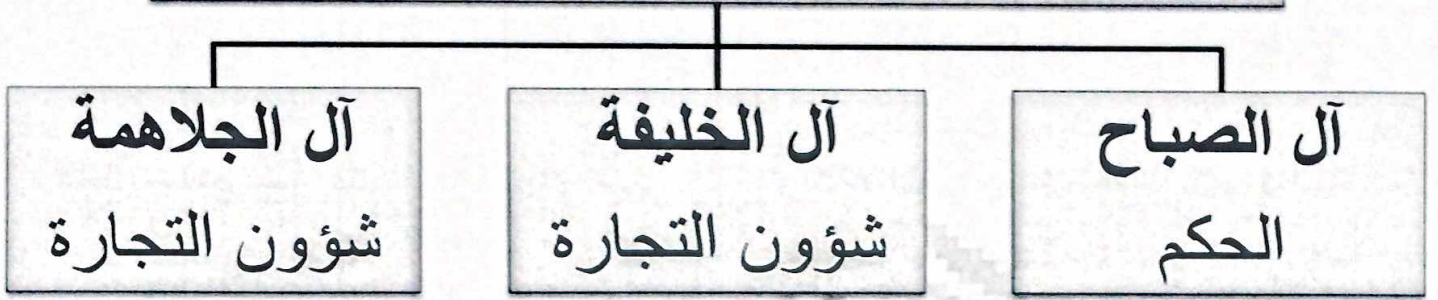 آل الصباح
الحكم
آل الخليفة
شؤون التجارة
آل الجلاهمة
شؤون التجارة